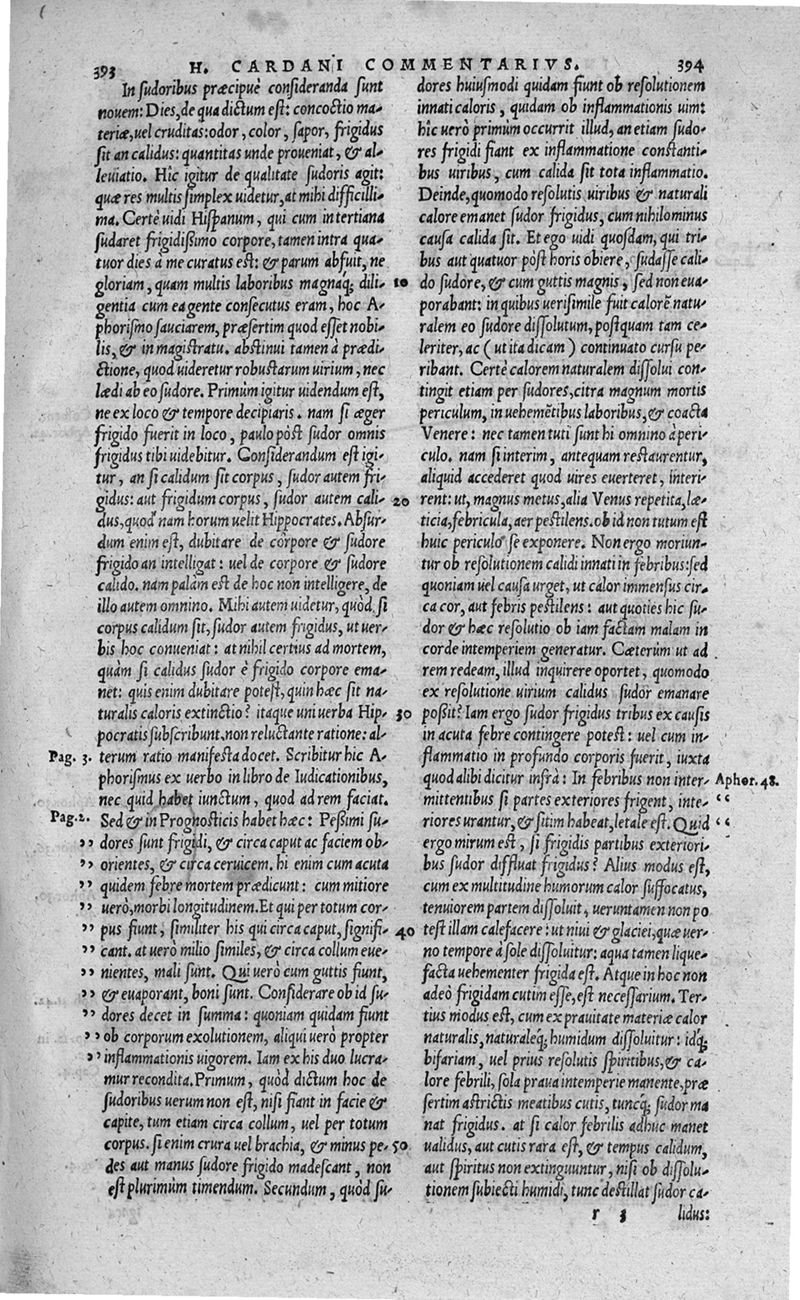 393 H. CARDANI COMMENTARIVS. 394
In ſudoribus præcipuè conſideranda ſunt
nouem: Dies, de qua dictum eſt: concoctio ma-
teriæ, uel cruditas: odor, color, ſapor, frigidus
ſit an calidus: quantitas unde proueniat, & al-
leuiatio. Hîc igitur de qualitate ſudoris agit:
quæ res multis ſimplex uidetur, at mihi difficilli-
ma. Certè uidi Hiſpanum, qui cum in tertiana
ſudaret frigidißimo corpore, tamen intra qua-
tuor dies à me curatus eſt: & parum abfuit, ne
gloriam, quam multis laboribus magnaq́; dili- 10
gentia cum ea gente conſecutus eram, hoc A-
phoriſmo ſauciarem, præſertim quod eſſet nobi-
lis, & in magiſtratu. abſtinui tamen à prædi-
ctione, quod uideretur robuſtarum uirium, nec
lædi ab eo ſudore. Primùm igitur uidendum eſt,
ne ex loco & tempore decipiaris. nam ſi æger
frigido fuerit in loco, paulo pòſt ſudor omnis
frigidus tibi uidebitur. Conſiderandum eſt igi-
tur, an ſi calidum ſit corpus, ſudor autem fri-
gidus: aut frigidum corpus, ſudor autem cali- 20
dus, quod nam horum uelit Hippocrates. Abſur-
dum enim eſt, dubitare de corpore & ſudore
frigido an intelligat: uel de corpore & ſudore
calido. nam palàm eſt de hoc non intelligere, de
illo autem omnino. Mihi autem uidetur, quòd ſi
corpus calidum ſit, ſudor autem frigidus, ut uer-
bis hoc conueniat: at nihil certius ad mortem,
quàm ſi calidus ſudor è frigido corpore ema-
net: quis enim dubitare poteſt, quin hæc ſit na-
turalis caloris extinctio? itaque uni uerba Hip- 30
pocratis ſubſcribunt, non reluctante ratione: al-
Pag. 3. terum ratio manifeſta docet. Scribitur hic A-
phoriſmus ex uerbo in libro de Iudicationibus,
nec quid habet iunctum, quod ad rem faciat.
Pag. 2. Sed & in Prognoſticis habet hæc: Peßimi ſu-
” dores ſunt frigidi, & circa caput ac faciem ob-
” orientes, & circa ceruicem. hi enim cum acuta
” quidem febre mortem prædicunt: cum mitiore
” uerò, morbi longitudinem. Et qui per totum cor-
” pus fiunt, ſimiliter his qui circa caput, ſignifi- 40
” cant. at uerò milio ſimiles, & circa collum eue-
” nientes, mali ſunt. Qui uerò cum guttis fiunt,
” & euaporant, boni ſunt. Conſiderare ob id ſu-
” dores decet in ſumma: quoniam quidam fiunt
” ob corporum exolutionem, aliqui uerò propter
” inflammationis uigorem. Iam ex his duo lucra-
mur recondita. Primum, quòd dictum hoc de
ſudoribus uerum non eſt, niſi fiant in facie &
capite, tum etiam circa collum, uel per totum
corpus. ſi enim crura uel brachia, & minus pe- 50
des aut manus ſudore frigido madeſcant, non
eſt plurimùm timendum. Secundum, quòd ſu-
dores huiuſmodi quidam fiunt ob reſolutionem
innati caloris, quidam ob inflammationis uim:
hîc uerò primùm occurrit illud, an etiam ſudo-
res frigidi fiant ex inflammatione conſtanti-
bus uiribus, cum calida ſit tota inflammatio.
Deinde, quomodo reſolutis uiribus & naturali
calore emanet ſudor frigidus, cum nihilominus
cauſa calida ſit. Et ego uidi quoſdam, qui tri-
bus aut quatuor pòſt horis obiere, ſudaſſe cali-
do ſudore, & cum guttis magnis, ſed non eua-
porabant: in quibus ueriſimile fuit calorẽ natu-
ralem eo ſudore diſſolutum, poſtquam tam ce-
leriter, ac (ut ita dicam) continuato curſu pe-
ribant. Certè calorem naturalem diſſolui con-
tingit etiam per ſudores, citra magnum mortis
periculum, in uehemẽtibus laboribus, & coacta
Venere: nec tamen tuti ſunt hi omnino à peri-
culo. nam ſi interim, antequam reſtaurentur,
aliquid accederet quod uires euerteret, interi-
rent: ut, magnus metus, alia Venus repetita, læ-
ticia, febricula, aer peſtilens. ob id non tutum eſt
huic periculo ſe exponere. Non ergo moriun-
tur ob reſolutionem calidi innati in febribus: ſed
quoniam uel cauſa urget, ut calor immenſus cir-
ca cor, aut febris peſtilens: aut quoties hic ſu-
dor & hæc reſolutio ob iam factam malam in
corde intemperiem generatur. Cæterùm ut ad
rem redeam, illud inquirere oportet, quomodo
ex reſolutione uirium calidus ſudor emanare
poßit? Iam ergo ſudor frigidus tribus ex cauſis
in acuta febre contingere poteſt: uel cum in-
flammatio in profundo corporis fuerit, iuxta
quod alibi dicitur infrà: In febribus non inter- Aphor. 48.
mittentibus ſi partes exteriores frigent, inte- “
riores urantur, & ſitim habeat, letale eſt. Quid “
ergo mirum eſt, ſi frigidis partibus exteriori-
bus ſudor diffluat frigidus? Alius modus eſt,
cum ex multitudine humorum calor ſuffocatus,
tenuiorem partem diſſoluit, ueruntamen non po
teſt illam calefacere: ut niui & glaciei, quæ uer-
no tempore à ſole diſſoluitur: aqua tamen lique-
facta uehementer frigida eſt. Atque in hoc non
adeò frigidam cutim eſſe, eſt neceſſarium. Ter-
tius modus eſt, cum ex prauitate materiæ calor
naturalis, naturaleq́; humidum diſſoluitur: idq́;
bifariam, uel prius reſolutis ſpiritibus, & ca-
lore febrili, ſola praua intemperie manente, præ
ſertim aſtrictis meatibus cutis, tuncq́; ſudor ma
nat frigidus. at ſi calor febrilis adhuc manet
ualidus, aut cutis rara eſt, & tempus calidum,
aut ſpiritus non extinguuntur, niſi ob diſſolu-
tionem ſubiecti humidi, tunc deſtillat ſudor ca-
r 3 lidus: